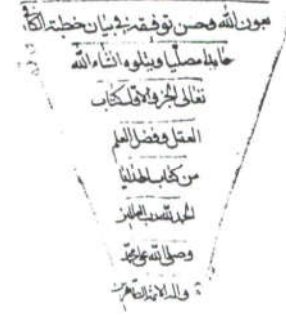 بعون الله وحسن توفيقه في بيان خطبة الكافي
حامدا مصليا ويتلوه انشاء الله
تعالى الجزء الاول كتاب
العقل وفضل العلم
من كتاب
الحمد لله رب العالمين
وصلى الله على محمد
واله الائمة الطاهرين